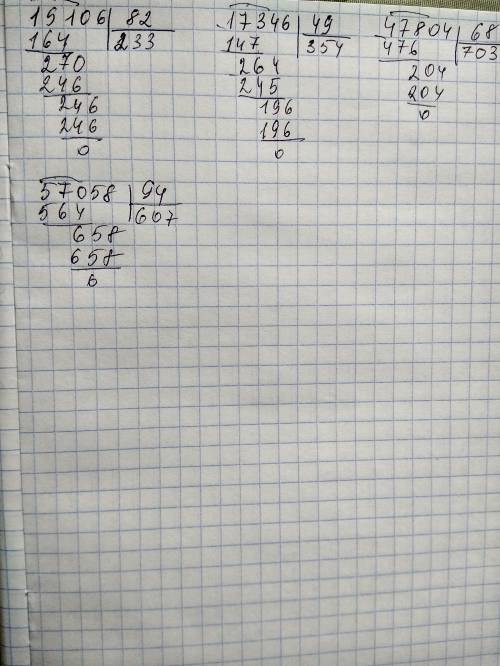 19106 82
164 233
270
246
246
246
0
17346 49
147 354
264
245
196
196
0
47804 68
476 703
204
204
0
57058 94
564 607
658
658
0